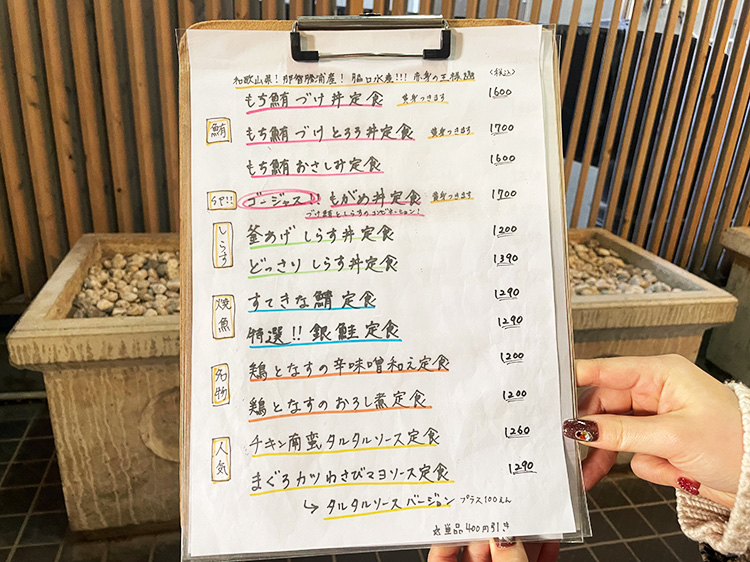 和歌山県!那智勝浦産!脇口水産!!!赤身の王様鮪 (税込)
もち鮪づけ丼定食 黄身つきます 1600
鮪 もち鮪づけとろろ丼定食 黄身つきます 1700
もち鮪おさしみ定食 1600
SP!! ゴージャス!!もがめ丼定食 黄身つきます 1700
づけ鮪としらすのコンビネーション!
しらす 釜あげしらす丼定食 1200
どっさりしらす丼定食 1390
焼魚 すてきな鯖定食 1290
特選!!銀鮭定食 1290
名物 鶏となすの辛味噌和え定食 1200
鶏となすのおろし煮定食 1200
人気 チキン南蛮タルタルソース定食 1260
まぐろカツわさびマヨソース定食 1290
↳タルタルソースバージョン プラス100えん
単品400円引き